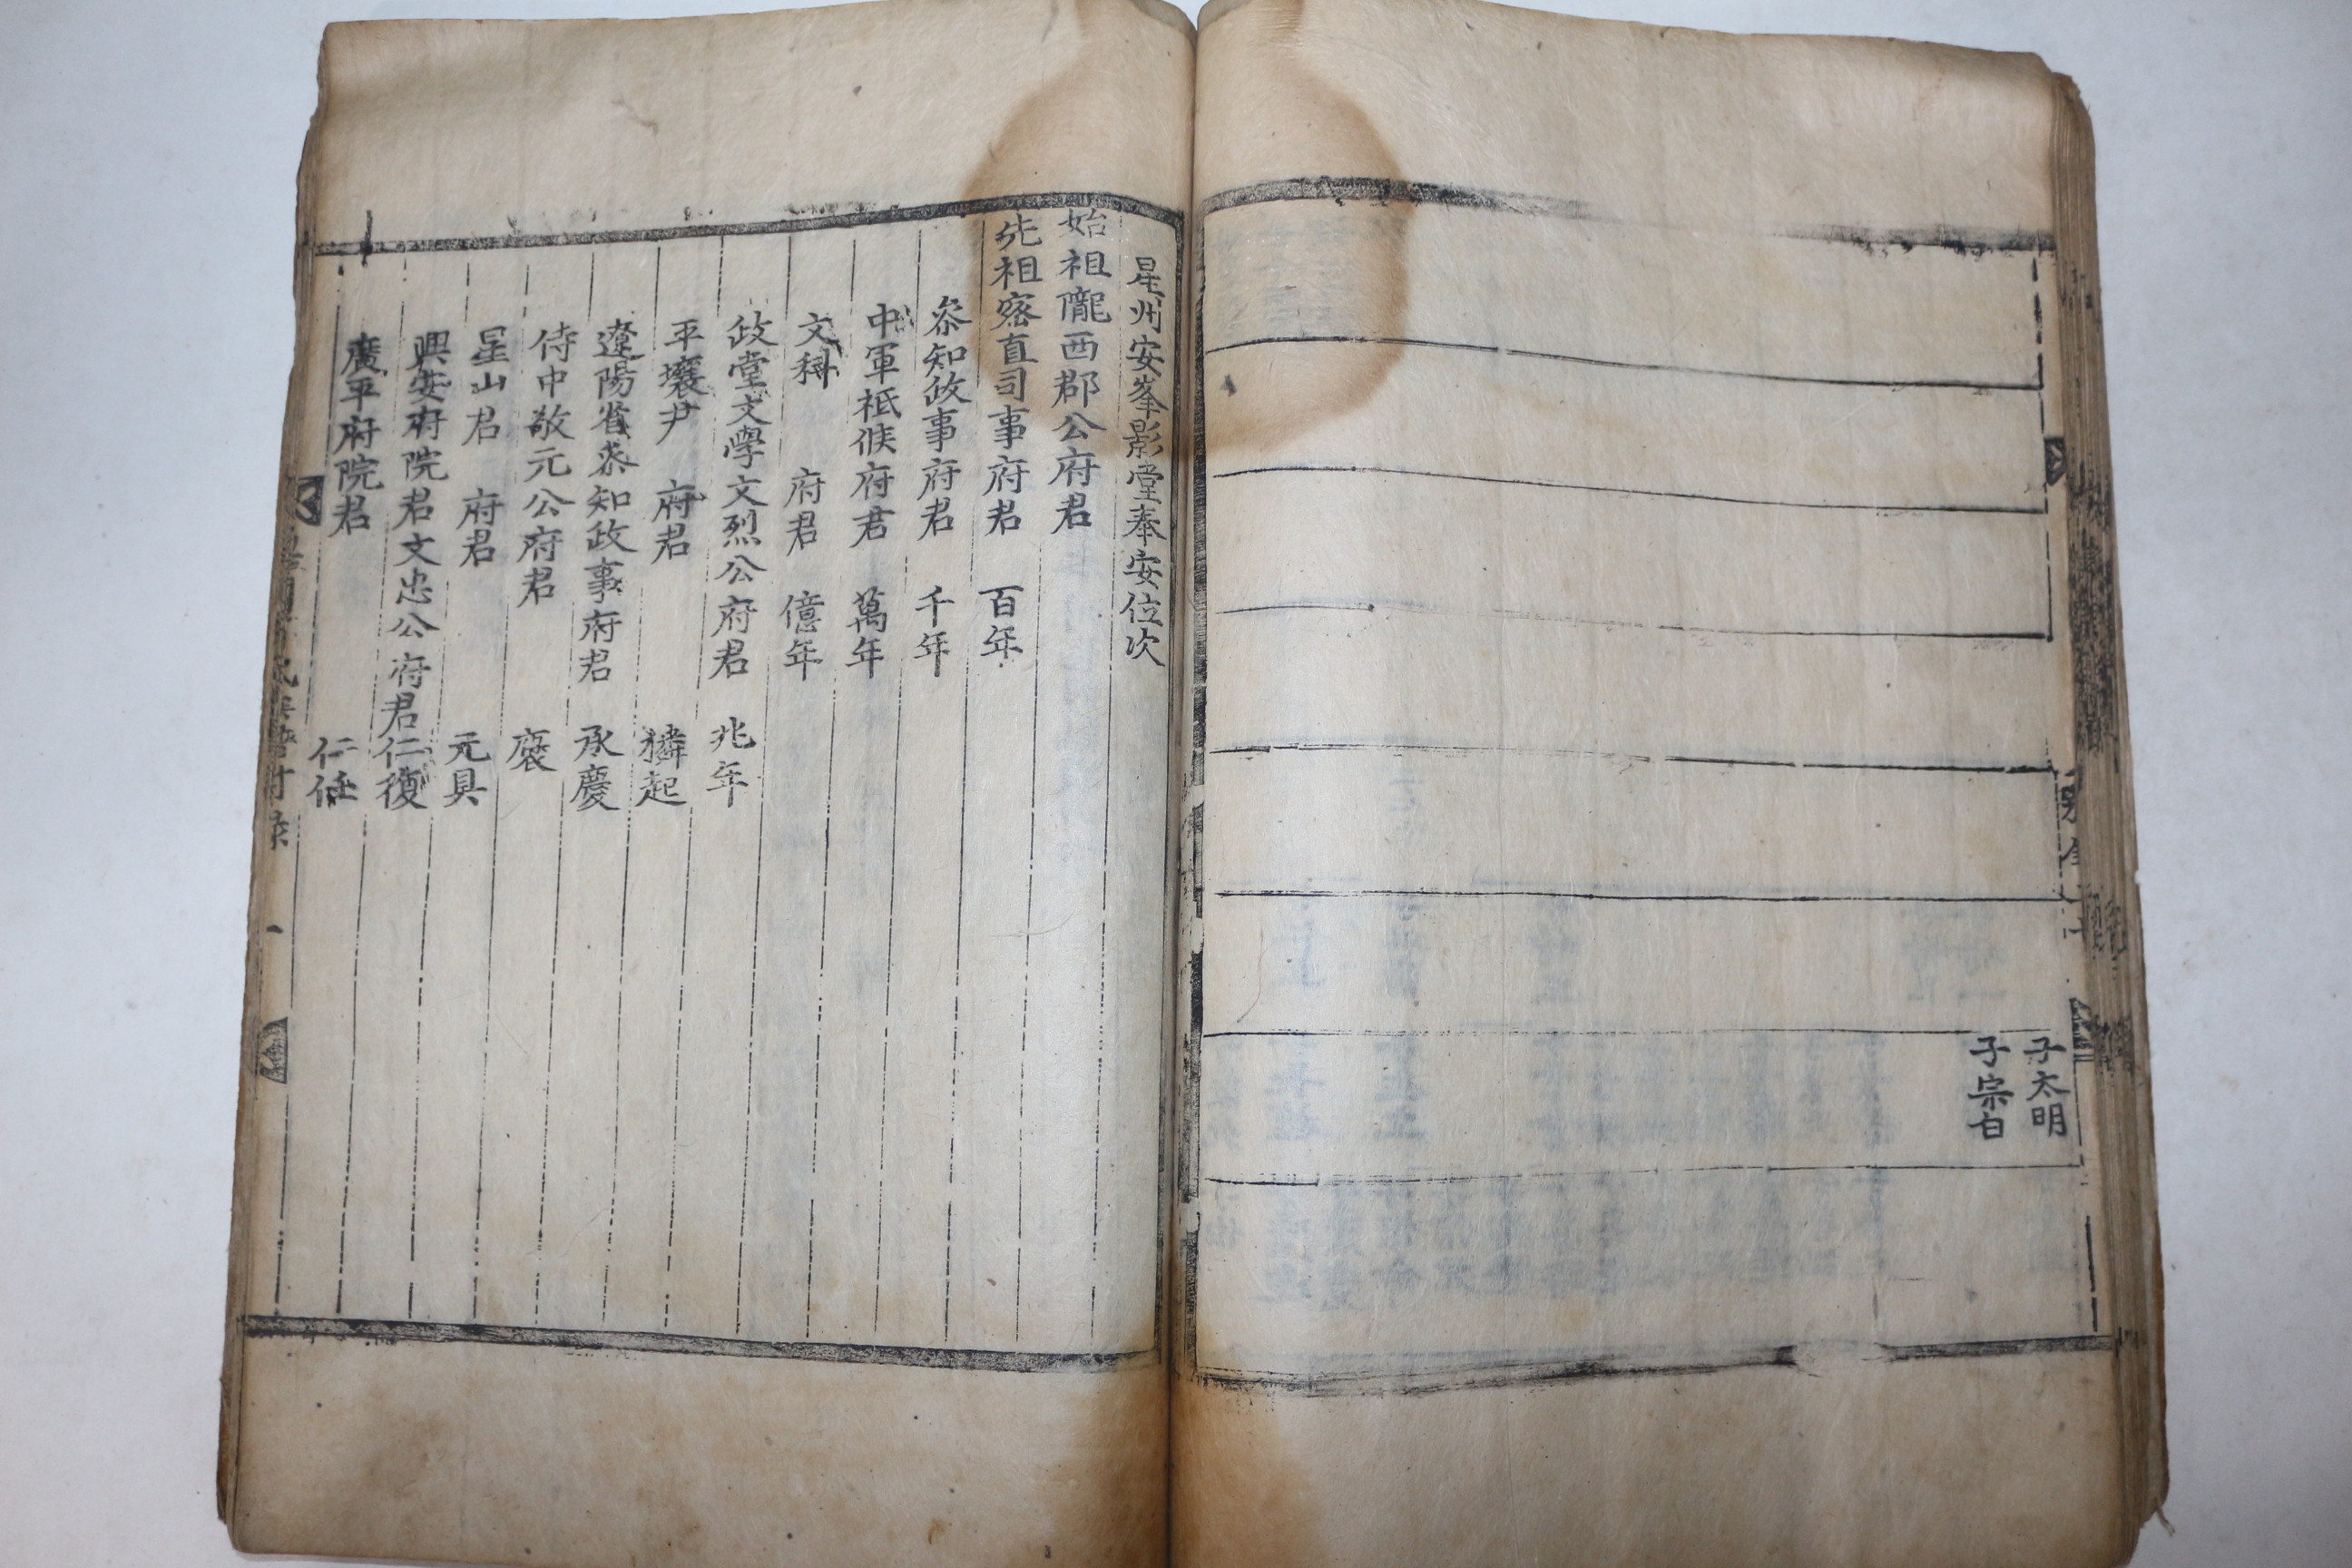 子太明
子宗白
星州安峯影堂奉安位次
始祖隴西郡公府君
先祖密直司事府君 百年
叅知政事府君 千年
中軍祗候府君 萬年
文科 府君 億年
政堂文學文烈公府君 兆年
平壤尹 府君 獜起
遼陽省叅知政事府君 承慶
侍中敬元公府君 襃
星山君 府君 元具
興安府院君文忠公府君 仁復
廣平府院君 仁任